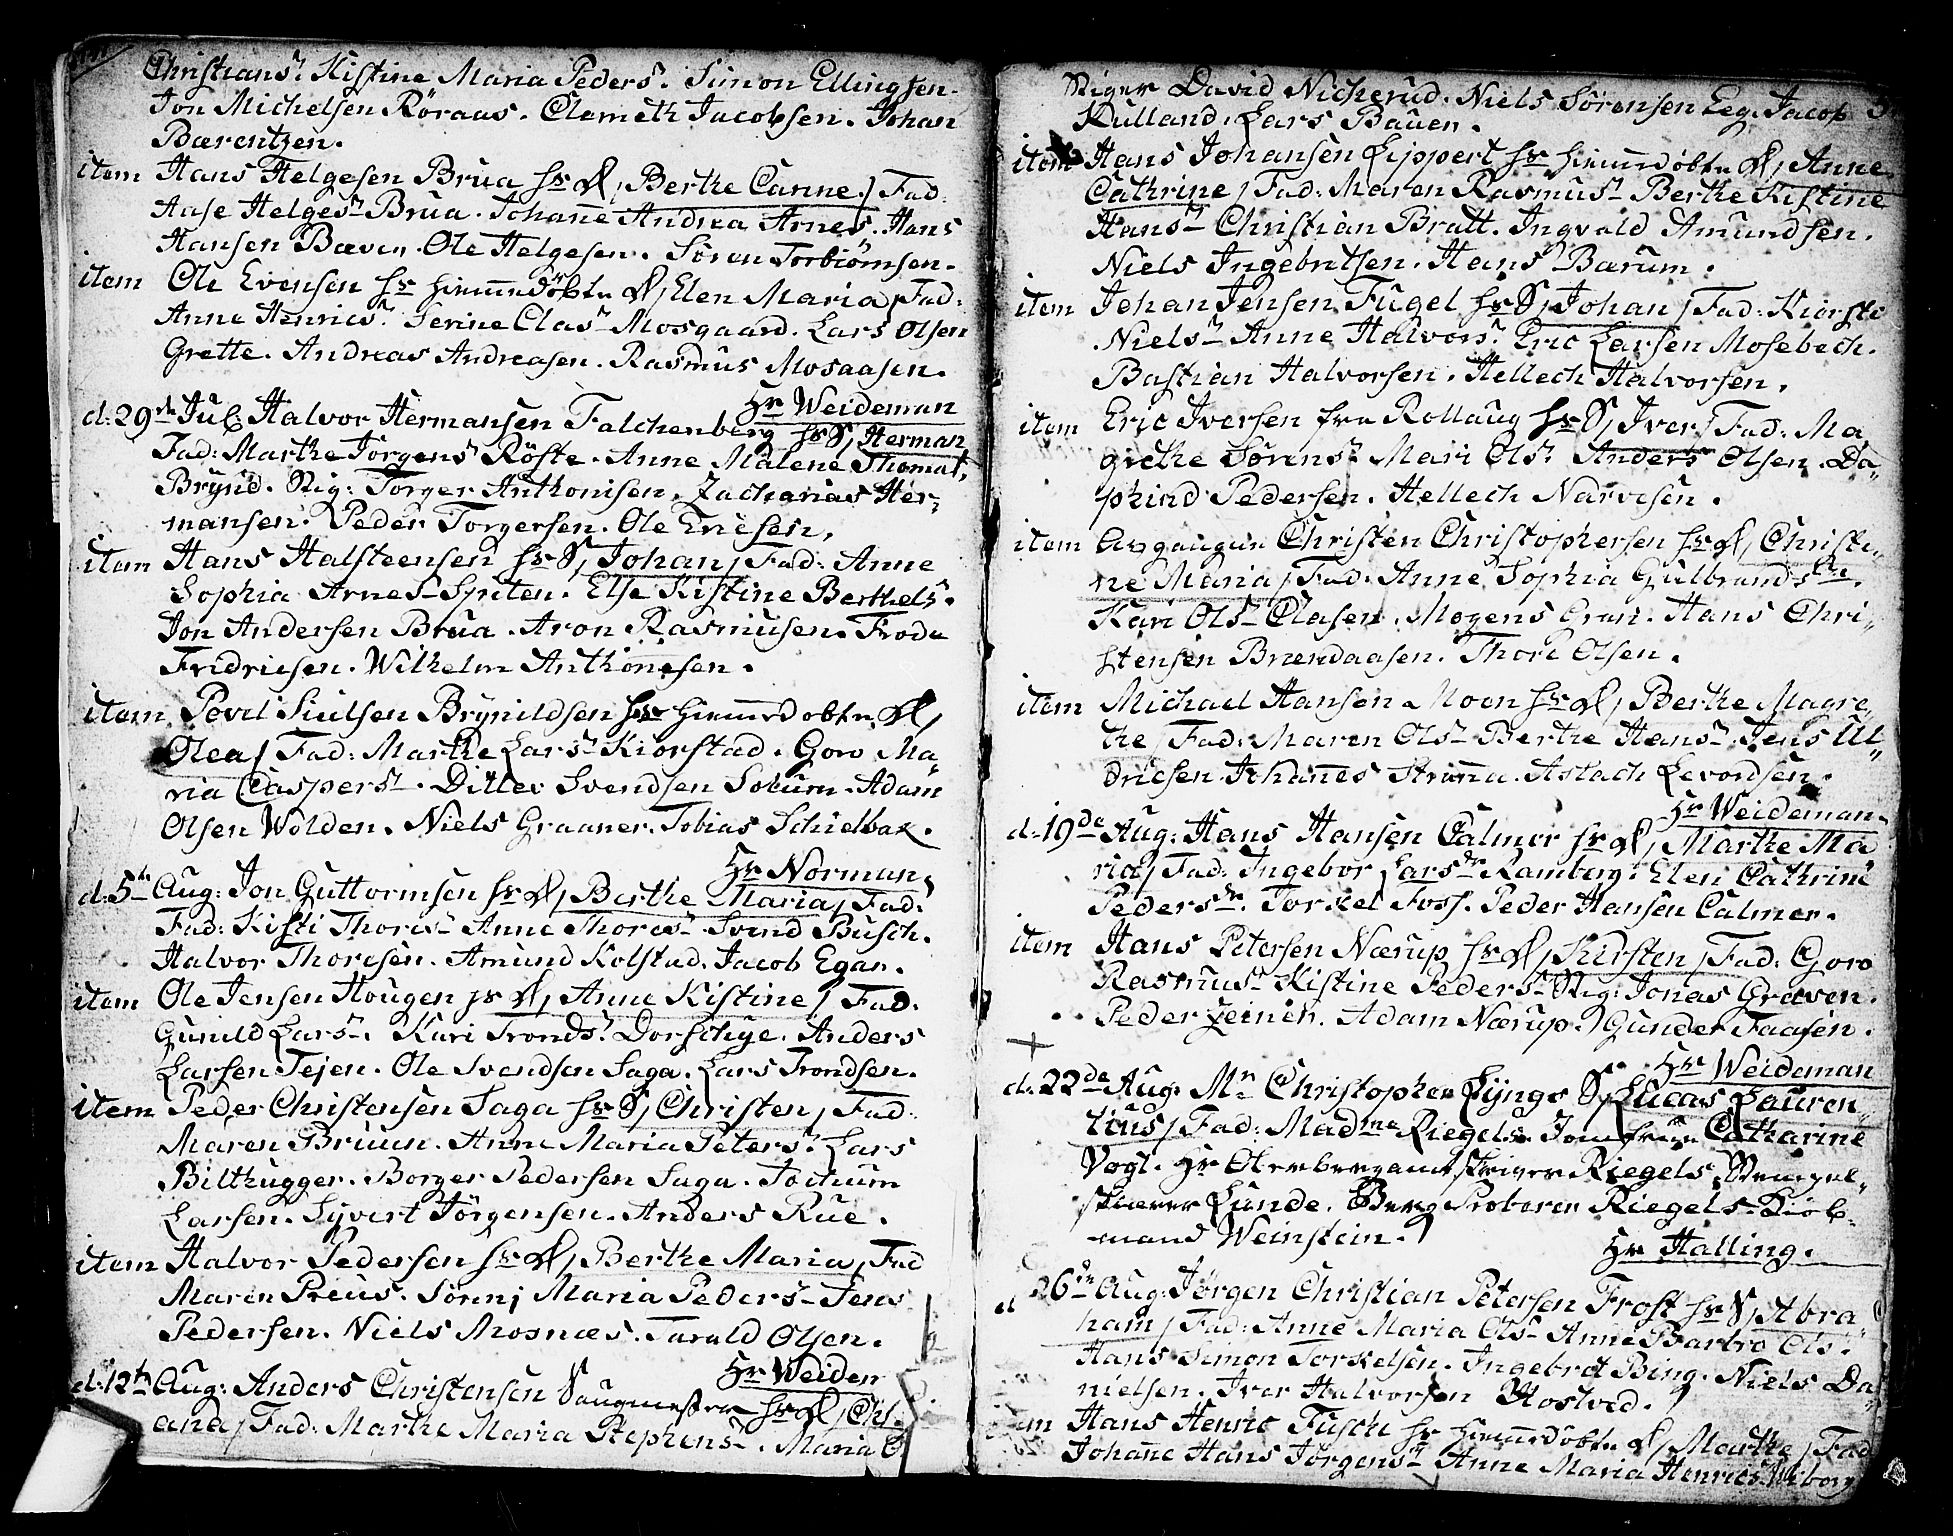 Christians? Kistine Maria Peders? Simon Ellingsen.
Jon Michelsen Röraas. Clemeth Jacobsen. Johan
Bærentzen.
item Hans Helgesen Brua hs D, Berthe Canne / Fad:
Aase Helges? Brua. Johane Andrea Arnes. Hans
Hansen Bæver. Ole Helgesen. Sören Torbiörnsen.
item Ole Evensen hs hiemmedöbte D, Elen Maria / Fad:
Anne Henrics? Serine Clas? Mosgaard. Lars Olsen
Grette. Andreas Andreasen. Rasmus Mosaasen.
Hr Weideman
d: 29de Jul Halvor Hermansen Falchenberg hs S, Herman
Fad: Marthe Jörgens Röste. Anne Malene Thomas.
Brynd. Stig: Torger Anthonisen. Zacharias Her-
mansen. Peder Torgersen. Ole Ericsen.
item Hans Halsteensen hs S, Johan / Fad: Anne
Sophia Arnes Spiten. Else Kistine Berthels.
Jon Andersen Brua. Aron Rasmusen. Frode
Fridricsen. Wilhelm Anthonesen.
item Povel Siulsen Brynildsen hs hiemmedobte D,
Olea / Fad: Marthe Lars Kiorstad. Goro Ma-
ria Caspers. Ditlev Svendsen Sokum. Adam
Olsen Wolden. Niels Graaner. Tobias Schielbax.
Hr Norman
d: 5te Aug: Jon Guttormsen hs D, Berthe Maria / Fad:
Fad: Kisti Thores Anne Thores Svend Busch.
Halvor Thoresen. Amund Kolstad. Jacob Egan.
item Ole Jensen Hougen hs D, Anne Kistine / Fad:
Gunild Lars. Kari Tronds. Dorschye. Anders
Larsen Tejen. Ole Svendsen Saga. Lars Trondsen.
item Peder Christensen Saga hs S, Christen / Fad:
Maren Bruun. Anne Maria Peters. Lars
Bilthugger. Borger Pedersen Saga. Jochum
Larsen. Syvert Jörgensen. Anders Rue.
item Halvor Pedersen hs D, Berthe Maria / Fad
Maren Preus. Sörenj Maria Peders Jens
Pedersen. Niels Mosnæs. Tarald Olsen.
Hr Weidem
d: 12te Aug: Anders Christensen Saugmester hs D, Chr.
ana / Fad: Marthe Maria Stephens. Maria
Stiger David Nicherud. Niels Sörensen Eeg. Jacob
Kulland. Lars Bauer.
item Hans Johansen Lippert hs hiemmedöbte D, Anne
Cathrine / Fad: Maren Rasmus Berthe Kistine
Hans Christian Bratt. Ingvald Amundsen.
Niels Ingebritsen. Hans Barum.
item Johan Jensen Fugel hs S, Johan / Fad: Kiersti
Niels Anne Halvors. Eric Larsen Mosebech.
Bastian Halvorsen. Hellech Halvorsen.
item Eric Iversen fra Rollaug hs S, Iver / Fad: Ma
grethe Sörens Mari Ols. Anders Olsen. Da-
phind Pedersen. Hellech Narvesen.
item Christen Christophersen hs D, Christi-
ne Maria / Fad: Anne Sophia Gulbrandsdtr.
Kari Ols Clasen. Mogens Gran. Hans Chri-
stensen Brendaasen. Thore Olsen.
item Michael Hansen Moen hs D, Berthe Magre-
the / Fad: Maren Ols Berthe Hans. Jens Ul-
dricsen. Johannes Aslach Levordsen.
Hr Weideman
d: 19de Aug: Hans Hansen Calmer hs D, Marthe Ma
ria / Fad: Ingebor Larsdr Ramberg. Elen Cathrine
Pedersdr. Torkel Foss. Peder Hansen Calmer.
item Hans Petersen Nærup hs D, Kirsten / Fad: Goro
Rasmus Kistine Peders Stig: Jonas Graven.
Peder Zeiner. Adam Nærup. Gunder Faasen.
Hr Weideman
d: 22de Aug: Mr Christopher Lynge S, Lucas Lauren-
tius / Fad: Madme Riegels. Jomfrue Catharine
Vogt. Hr Oberbergamtskriver Riegels. Stempel-
skierer Lunde. Berg Proberer Riegels. Kiöb-
mand Weinstein.
Hr Halling.
d 26de Aug: Jörgen Christian Petersen Frost hs S, Abra
ham / Fad: Anne Maria Ols Anne Barbro Ols.
Hans Simon Torkelsen. Ingebret Bing. Niels Da
nielsen. Iver Halvorsen Hostved.
item Hans Henric Fusche hs hiemmedöbte D, Marthe / Fad
Johane Hans Jörgens Anne Maria Henrics Wiborg